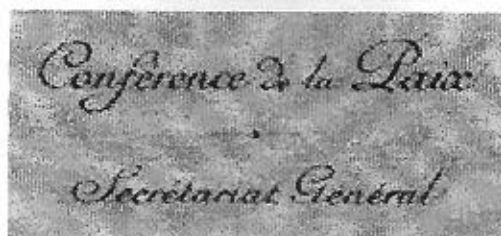 Conférence de la Paix
Secrétariat Général